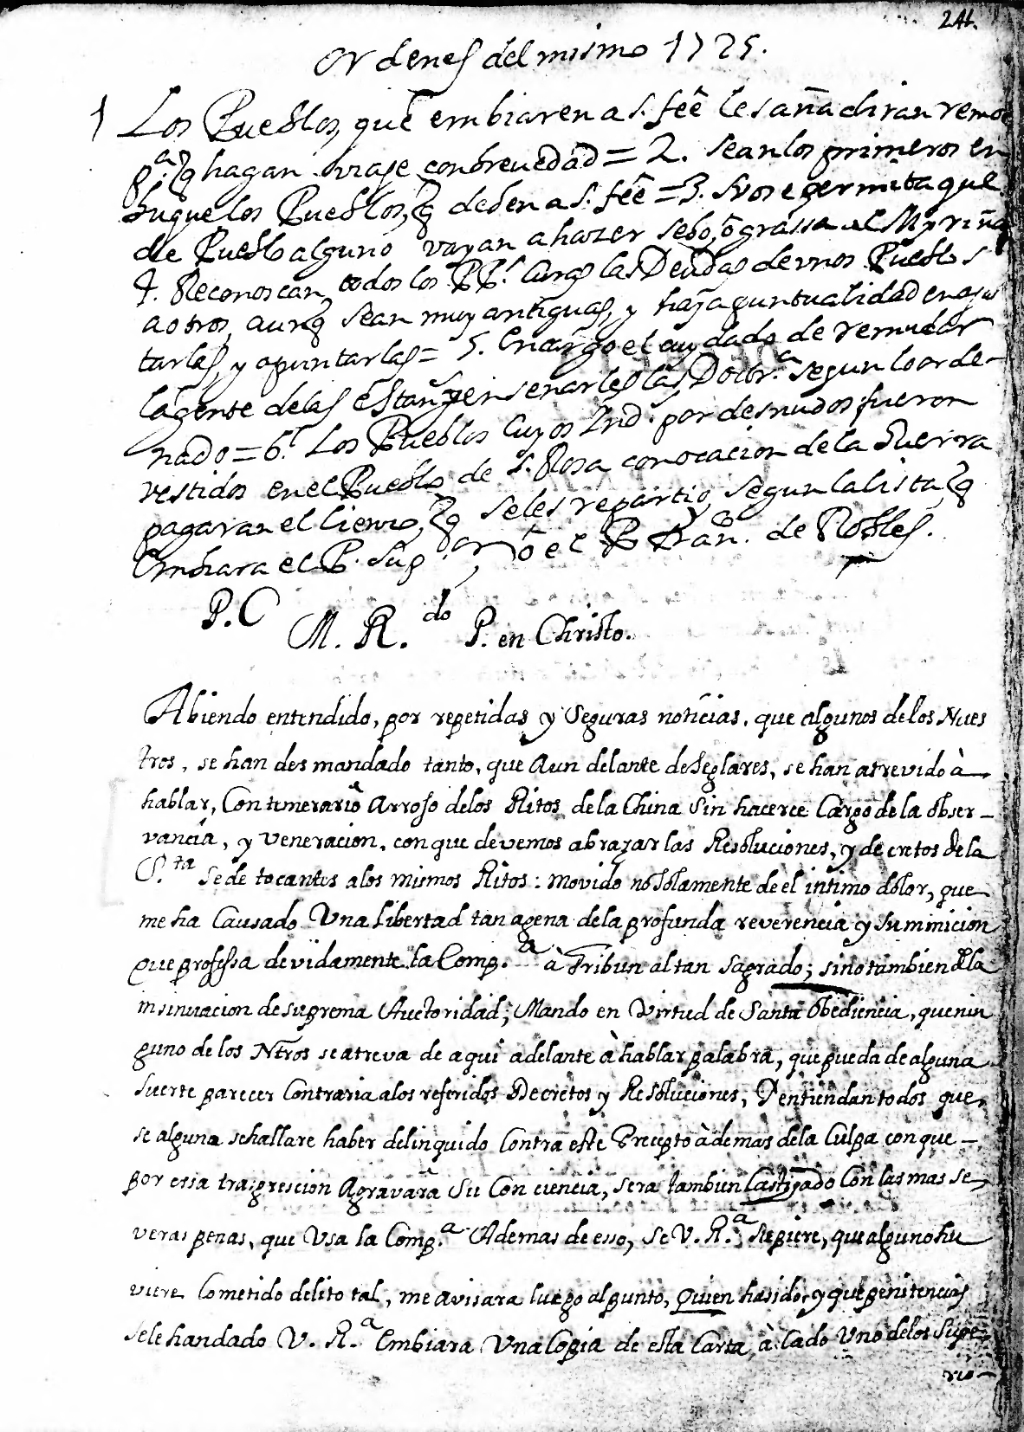 241.
Ordenes del mismo 1725.
1 Los Pueblos, que embiaren a S. feê les añadiran remos
pa. q̃ hagan viaje con brevedad = 2. Sean los primeros en
buque los Pueblos, q̃ deben a S. feê = 3. No se permita que
de Pueblo alguno vayan a hazer sebo, ò grassa al
4. Reconoscan todos los PPs. Curas las Deudas de unos Pueblos
a otros, aunq̃ sean muy antiguas, y haja puntualidad en ajus
tarlas, y apuntarlas = 5. Encargo el cuydado de remudar
la gente de las estans. y ensenarles las Doctra. segun lo orde-
nado = 6. Los Pueblos cuyos Ind.s por desnudos fueron
vestidos en el Pueblo de S. Rosa con ocacion de la Guerra
pagaran el lienzo, q̃ se les repartio, segun la lista, q̃
embiara el P. Supor. el P. Fran.co de Robles.
P. C
M. R.do P. en Christo.
Abiendo entendido, por repetidas y Seguras noticias, que algunos de los Nues
tros, se han desmandado tanto, que Aun delante de Seglares, se han atrevido à
hablar, Con temerario Arrojo de los Ritos de la China Sin hacerce Cargo de la obser-
vancia, y Veneracion, con que devemos abrazar las Resoluciones, y decretos de la
S.ta Sede tocantes a los mismos Ritos: movido no Solamente de el intimo dolor, que
me ha Causado Una libertad tan agena de la profunda reverencia y Summicion
Que professa devidamente la Comp.a à Tribunal tan Sagrado; sino tambien de la
insinuacion de suprema Auctoridad; Mando en Virtud de Santa Obediencia, que nin
guno de los Ntros se atreva de aqui adelante à hablar palabra, que pueda de alguna
Suerte parecer Contraria a los referidos Decretos y Resoluciones, Y entiendan todos que,
se alguna se hallare haber delinquido Contra este Precepto à demas de la Culpa con que-
por essa trasgrescion Agravara Su Conciencia, sera tambien Castigado Con las mas se-
veras penas, que Usa la Comp.a Ademas de esso, Se V. R.a Supiere, que alguno hu
viere Cometido delito tal, me avisara luego al punto, Quien ha sido, y que penitencias
se le han dado V. R.a Embiara Una Copia de esta Carta, à Cado Uno de los Supe-
rio-